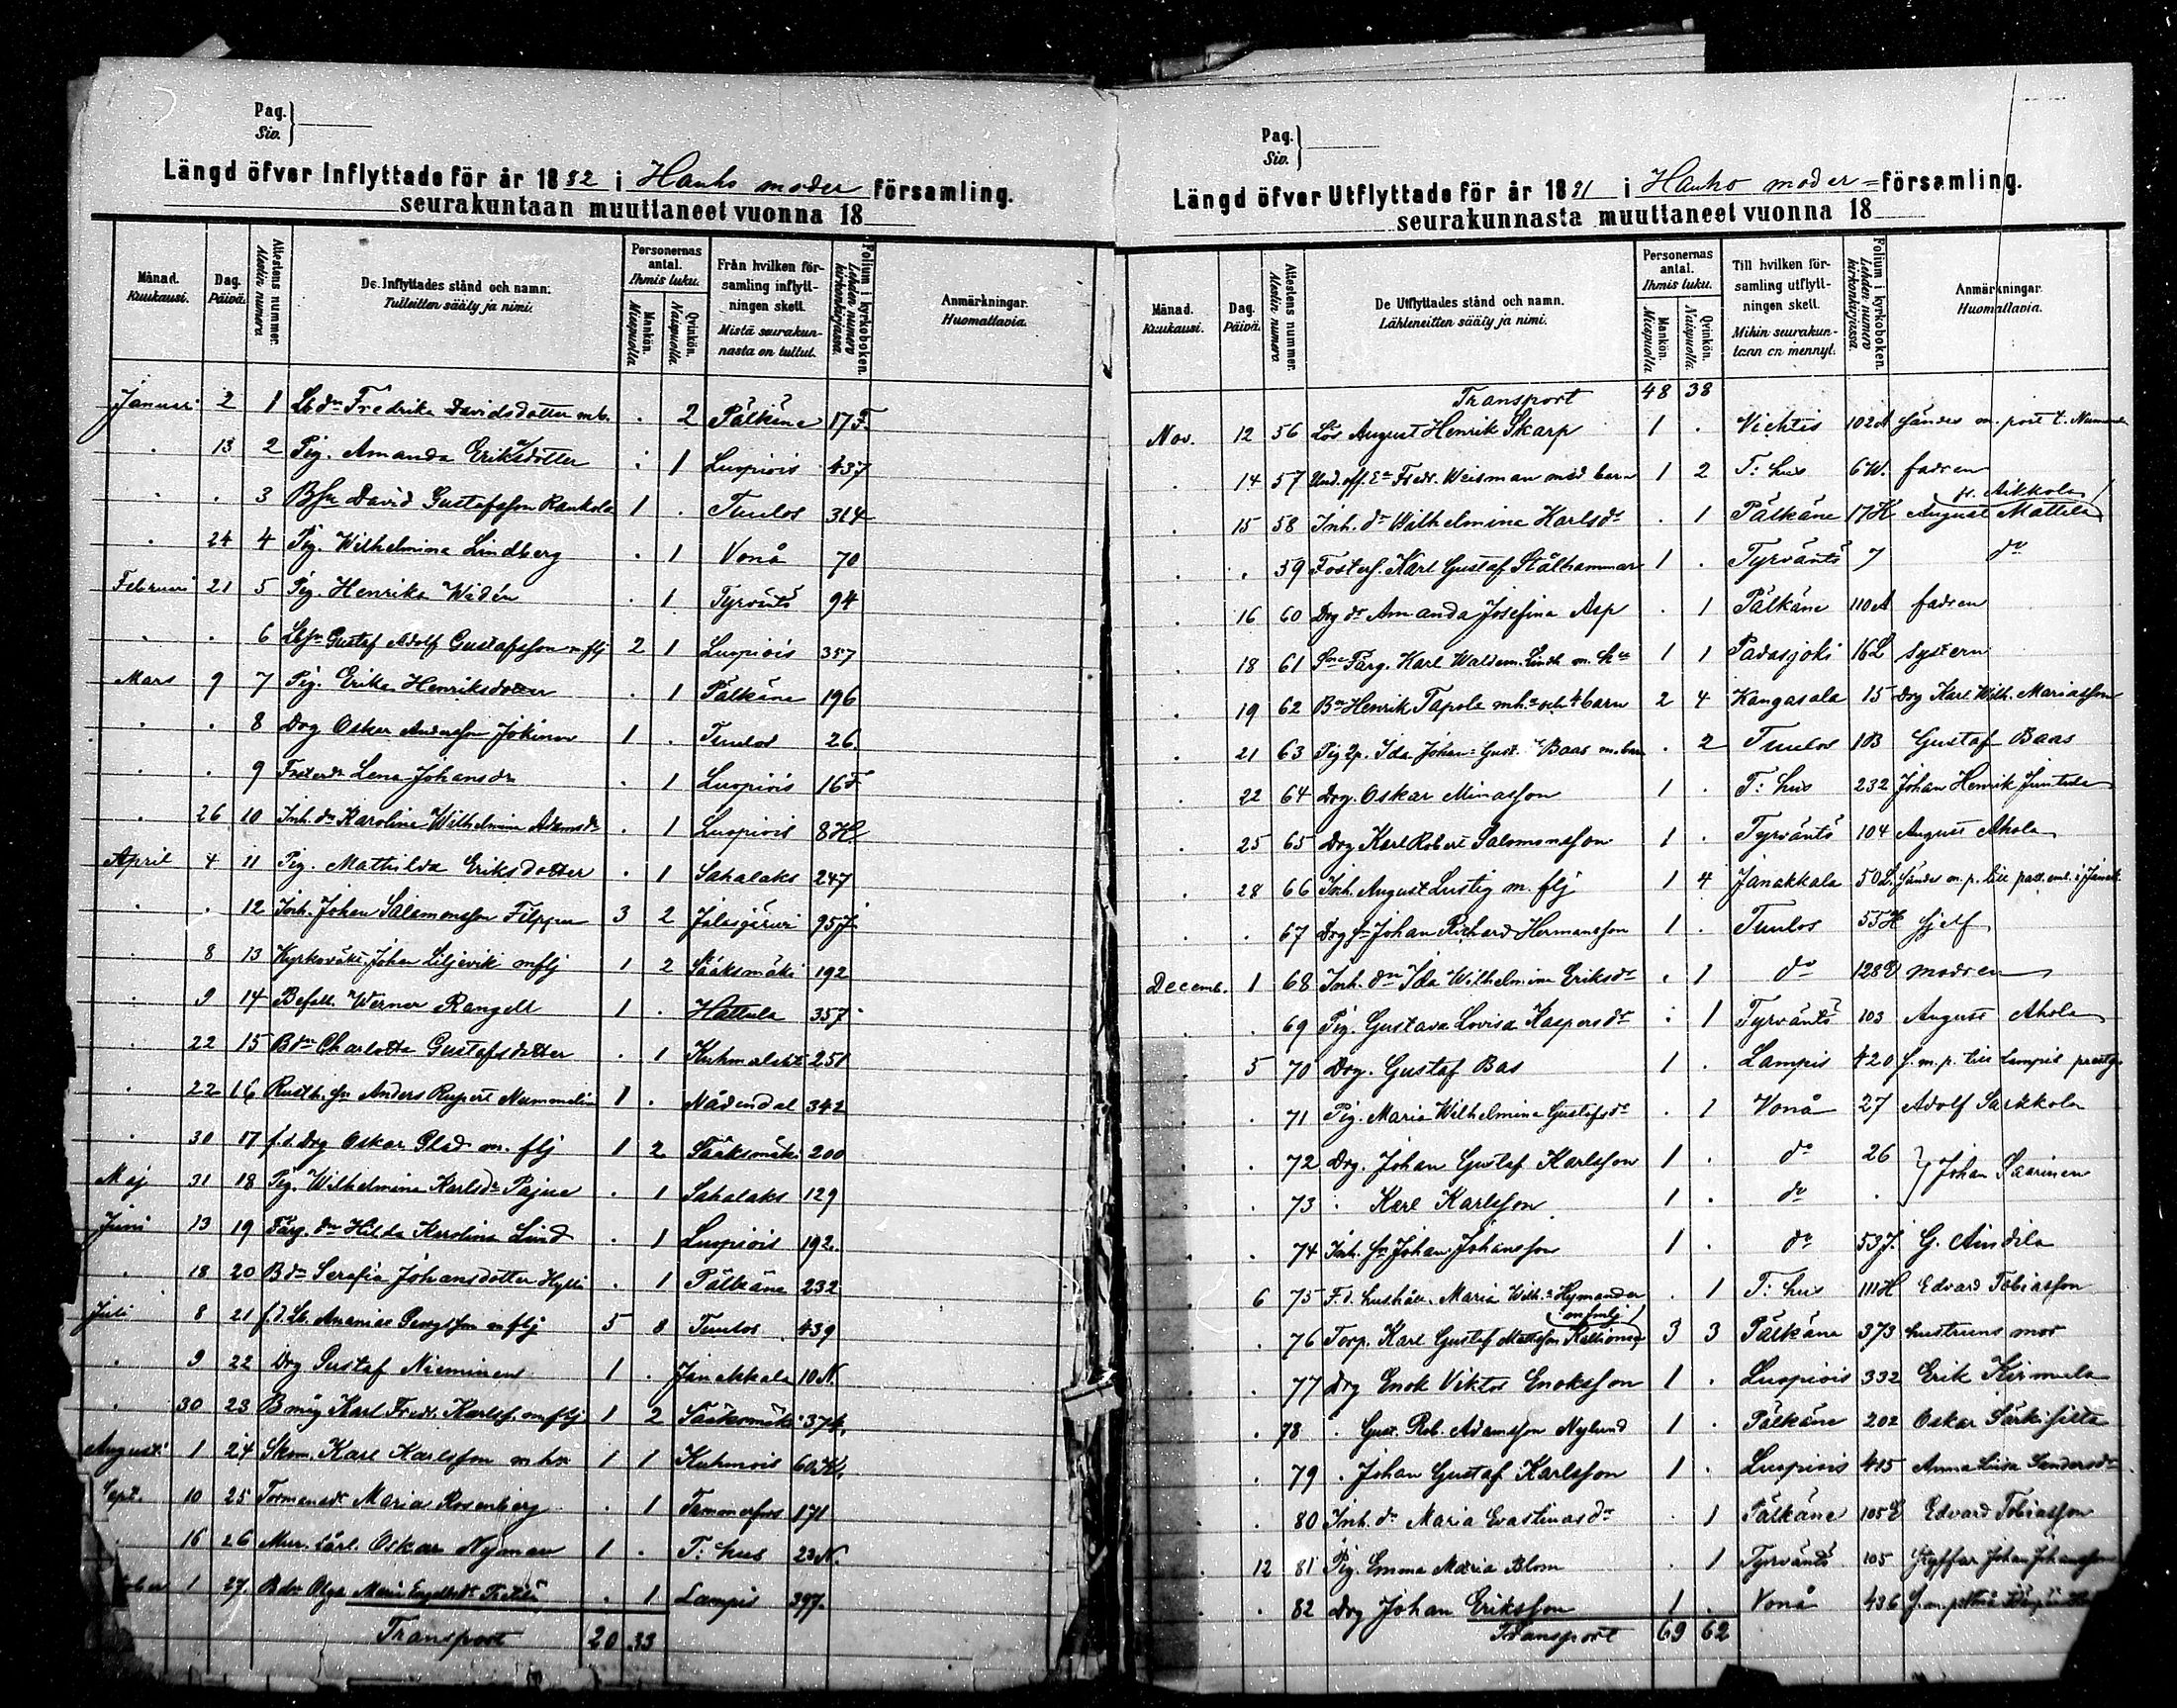 Pag.
Siv.
Längd öfver Inflyttade för år 1882 i Hauho moder församling.
seurakuntaan muuttaneet vuonna 18
Månad. Kuukausi.
Dag. Päivä.
Attestens nummer. Alestin numero
De Inflyttades stånd och namn. Tulleitten sääty ja nimi.
Personernas antal. Ihmis luku.
Mankön. Miespuolia
Qvinkön. Naispuolia
Från hvilken församling inflyttningen skett. Mistä seurakunnasta on tullut.
Folium i kyrkoboken. Lehden numero kirkonkirjassa.
Anmärkningar. Huomattavia.
Januari 2 1 Lbdr Fredrika Davidsdotter mb. . 2 Pälkäne 17 F.
. 13 2 Pig. Amanda Eriksdotter . 1 Luopiois 437
. . 3 Bsn David Gustafsson Rankola 1 . Tuulos 314
. 24 4 Pig. Wilhelmina Lindberg . 1 Vonå 70
Februari 21 5 Pig. Henrika Widén . 1 Tyrväntö 94
. . 6 Lbsn Gustaf Adolf Gustafsson m flj 2 1 Luopiois 357
Mars 9 7 Pig. Erika Henriksdotter . 1 Pälkäne 196
. . 8 Drg Oskar Andersson Jokinen 1 . Tuulos 26
. . 9 Lena Johansdr . 1 Luopiois 16 F
. 26 10 Inh. dr Karolina Wilhelmina Adamsdr . 1 Luopiois 8 H.
April 4 11 Pig. Mathilda Eriksdotter . 1 Sahalaks 247
. . 12 Inh. Johan Salomonsson Filppu 3 2 Jalasjärvi 95 J
. 8 13 Kyrkovakt. Johan Liljevik m flj 1 2 Sääksmäki 192
. 9 14 Befall. Werner Rangell 1 . Hattula 357
. 22 15 Bdr Charlotta Gustafsdotter . 1 Kuhmalaks 251
. 22 16 Rusth. sn Anders Rupert Nummelin 1 . Nådendal 342
. 30 17 f.d. Drg Oskar Glad m. flj 1 2 Sääksmäki 200
Maj 31 18 Pig. Wilhelmina Karlsdr Pajus . 1 Sahalaks 129
Juni 13 19 Färg. dr Hilda Karolina Lind . 1 Luopiois 192
. 18 20 Bdr Serafia Johansdotter Hylli . 1 Pälkäne 232
Juli 8 21 f.d. Lb. Ananias Georgsson m flj 5 8 Tuulos 439
. 9 22 Drg Gustaf Nieminen 1 . Janakkala 10 N.
. 30 23 Bmåg Karl Fredr. Karlss. m flj 1 2 Sääksmäki 374
Augusti 1 24 Skom. Karl Karlsson m hu 1 1 Kuhmois 60 K.
Sept. 10 25 Maria Rosenberg . 1 Tammerfors 171
. 16 26 Mur. lärl. Oskar Nyman 1 . T:hus 23 N.
tober 1 27 Bdr Olga Maria . 1 Lampis 397
Transport 20 33
Pag.
Siv.
Längd öfver Utflyttade för år 1881 i Hauho moder=församling.
seurakunnasta muuttaneet vuonna 18
Månad. Kuukausi.
Dag. Päivä.
Attestens nummer. Alestin numero
De Utflyttades stånd och namn. Lähteneitten sääty ja nimi.
Personernas antal. Ihmis luku.
Mankön. Miespuolia
Qvinkön. Naispuolia
Till hvilken församling utflyttningen skett. Mihin seurakuntaan on mennyt.
Folium i kyrkoboken. Lehden numero kirkonkirjassa.
Anmärkningar. Huomattavia.
Transport 48 38
Nov. 12 56 Lös August Henrik Skarp 1 . Vichtis 102 A sändes m. post t.
. 14 57 Und.off. Ea Fredr. Weisman med barn 1 2 T:hus 6 W. fadren
. 15 58 Inh. dr Wilhelmina Karlsdr . 1 Pälkäne 17 K August Mattila
. . 59 Fosters. Karl Gustaf Stålhammar 1 . Tyrväntö 7 do
. 16 60 Drg dr Amanda Josefina Asp . 1 Pälkäne 110 A fadren
. 18 61 Färg. Karl Waldem. Lindh m. hu 1 1 Padasjoki 16 L systern
. 19 62 Bn Henrik Tapola m hu och 4 barn 2 4 Kangasala 15 Drg Karl Wilh. Mariasson
. 21 63 Pig Ida Johan: Gust. Baas m. barn . 2 Tuulos 1 B Gustaf Baas
. 22 64 Drg. Oskar Minasson 1 . T:hus 232 Johan Henrik Juntula
. 25 65 Drg Karl Robert Salomonsson 1 . Tyrväntö 104 August Ahola
. 28 66 Inh. August Lustig m. flj 1 4 Janakkala 50 L. sändes m. p. till past. emb. i Janak.
. . 67 Drg sn Johan Richard Hermansson 1 . Tuulos 55 H sjelf
Decemb. 1 68 Inh. dr Ida Wilhelmina Eriksdr . 1 do 128 D modren
. . 69 Pig. Gustava Lovisa Kaspersdr . 1 Tyrväntö 103 August Ahola
. 5 70 Drg. Gustaf Bas 1 . Lampis 420 s. m. p. till Lampis prestg.
. . 71 Pig. Maria Wilhelmina Gustafsdr . 1 Vonå 27 Adolf Sarkkola
. . 72 Drg. Johan Gustaf Karlsson 1 . do 26 } Johan Saarinen
. . 73 . Karl Karlsson 1 . do .
. . 74 Inh. sn Johan Johansson 1 . do 53 J. G. Aindila
. 6 75 F.d. hushåll. Maria Wilh:a Hymander . 1 T:hus 111 H Edvard Tobiasson
. . 76 Torp. Karl Gustaf Mattsson Kallionen m fmlj 3 3 Pälkäne 373 hustruns mor
. . 77 Drg Enok Viktor Enoksson 1 . Luopiois 332 Erik Kirmula
. . 78 . Gust. Rob. Adamsson Nylund 1 . Pälkäne 202 Oskar Särkisilta
. . 79 . Johan Gustaf Karlsson 1 . Luopiois 415 Anna Lisa Sandersdr
. . 80 Inh. dr Maria Evastinasdr . 1 Pälkäne 105 E Edvard Tobiasson
. 12 81 Pig. Emma Maria Blom . 1 Tyrväntö 105 Johan Johansson
. . 82 Drg Johan Eriksson 1 . Vonå 436
Transport 69 62